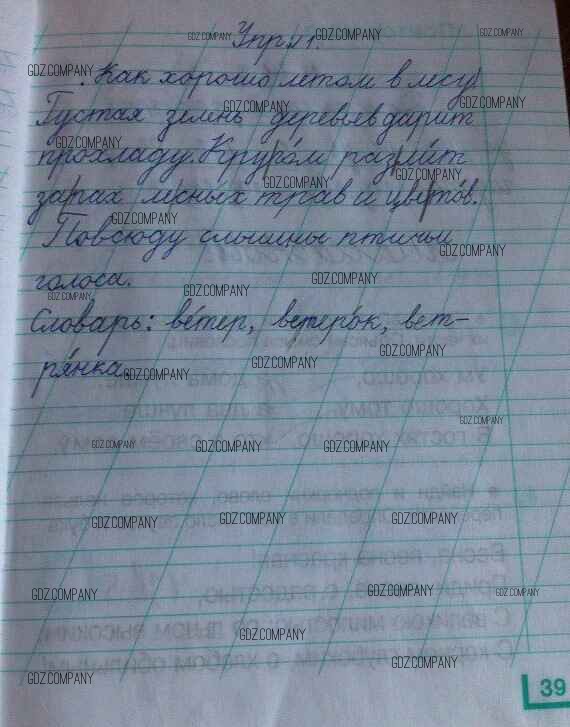 Упр. 1.
Как хорошо летом в лесу!
Густая зелень деревьев дарит
прохладу. Кругом разлит
запах лесных трав и цветов.
Повсюду слышны птичьи
голоса.
Словарь: ве́тер, ветеро́к, вет-
ря́нка.
39
GDZ.COMPANY